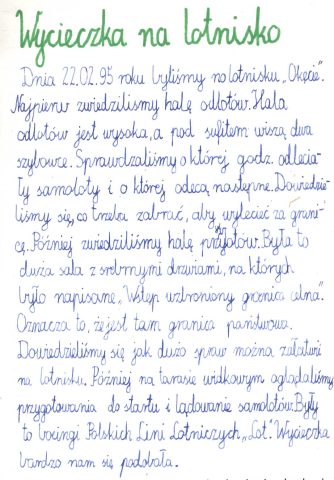 Wycieczka na lotnisko
Dnia 22.02.95 roku byliśmy na lotnisku „Okęcie".
Najpierw zwiedzilismy halę odlotów. Hala
odlotów jest wysoka, a pod sufitem wiszą dwa
szybowce. Sprawdzaliśmy o której godz. odlecia-
ły samoloty i o której odecą następne. Dowiedzie-
liśmy się, co trzeba zabrać, aby wylecieć za grani-
cę. Później zwiedziliśmy halę przylotów. Była to
duża sala z srebrnymi drzwiami, na których
było napisane „Wstęp wzbroniony granica celna".
Oznacza to, że jest tam granica państwowa.
Dowiedzieliśmy się jak dużo spraw można załatwić
na lotnisku. Później na tarasie widkowym oglądaliśmy
przygotowania do startu i lądowanie samolotów. Były
to boeingi Polskich Lini Lotniczych „Lot". Wycieczka
bardzo nam się podobała.